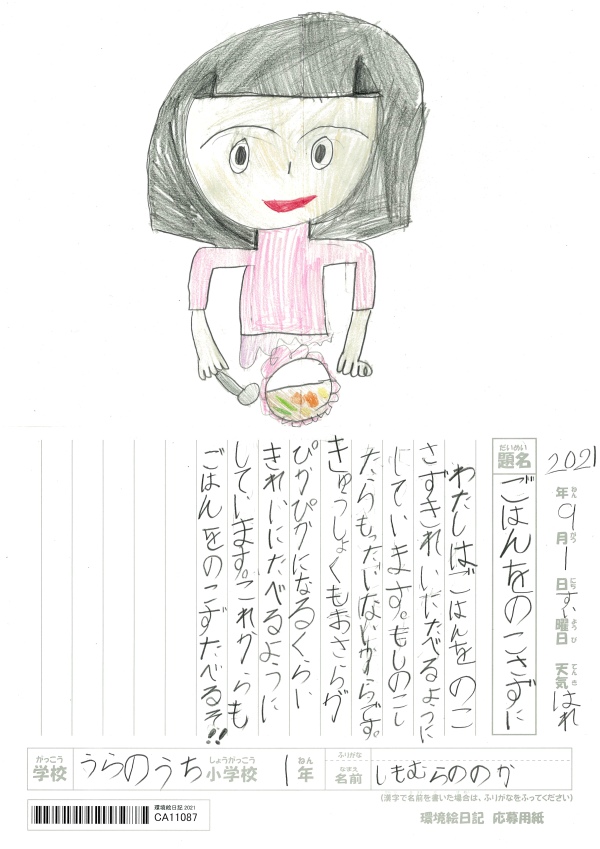 2021年9月1日すい曜日 天気はれ
ねん がつ にち ようび てんき
だいめい
題名 ごはんをのこさずに
わたしはごはんをのこ
さずきれいにたべるように
しています。もしのこし
たらもったいないからです。
きゅうしょくもおさらが
ぴかぴかになるくらい
きれいにたべるように
しています。これからも
ごはんをのこずたべるぞ!!
がっこう しょうがっこう ねん ふりがな
学校 うらのうち小学校 1年 なまえ 名前 しもむらののか
(漢字で名前を書いた場合は、ふりがなをふってください)
環境絵日記 2021
CA11087
環境絵日記 応募用紙